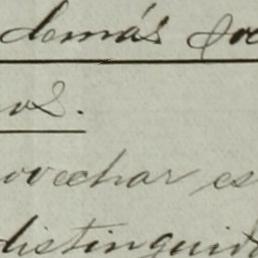 demás
os.
ovechar es
distinguid